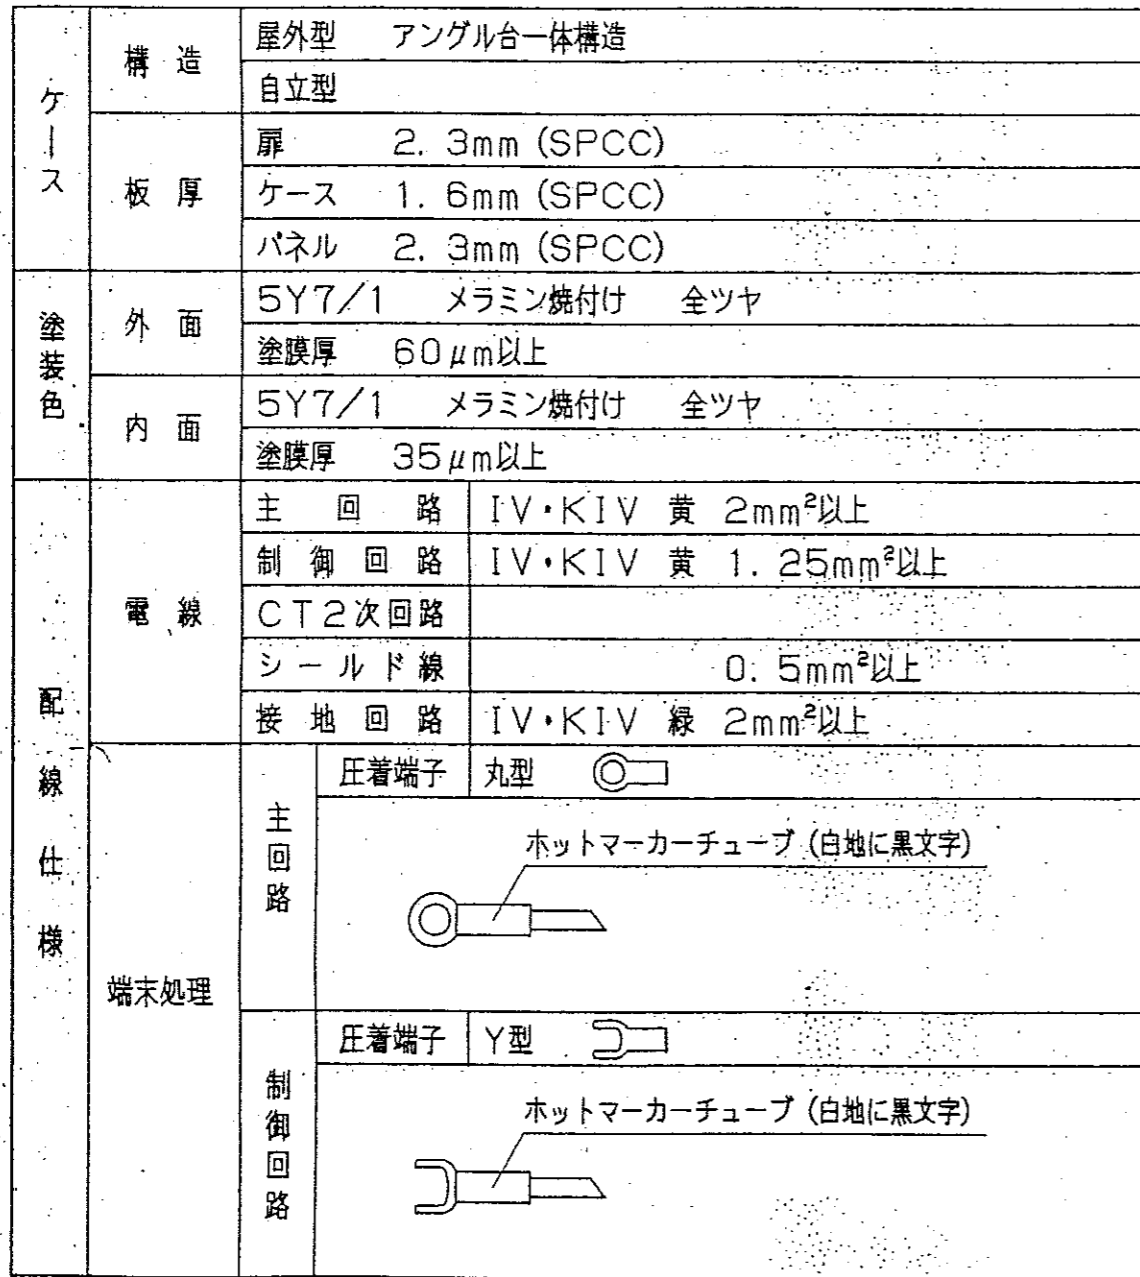 ケース
構造
屋外型 アングル台一体構造
自立型
板厚
扉 2.3mm (SPCC)
ケース 1.6mm (SPCC)
パネル 2.3mm (SPCC)
塗装色
外面
5Y7/1 メラミン焼付け 全ツヤ
塗膜厚 60μm以上
内面
5Y7/1 メラミン焼付け 全ツヤ
塗膜厚 35μm以上
配線仕様
電線
主回路 IV・KIV 黄 2mm²以上
制御回路 IV・KIV 黄 1.25mm²以上
CT2次回路
シールド線 0.5mm²以上
接地回路 IV・KIV 緑 2mm²以上
端末処理
主回路
圧着端子 丸型
ホットマーカーチューブ (白地に黒文字)
制御回路
圧着端子 Y型
ホットマーカーチューブ (白地に黒文字)